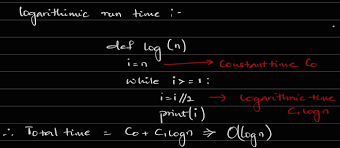 logarithimic run time :-
def log (n)
i=n → Constant time C₀
while i>=1:
i=i//2 → logarithmic time
C₁logn
print(i)
∴ Total time = C₀ + C₁logn ⇒ O(logn)